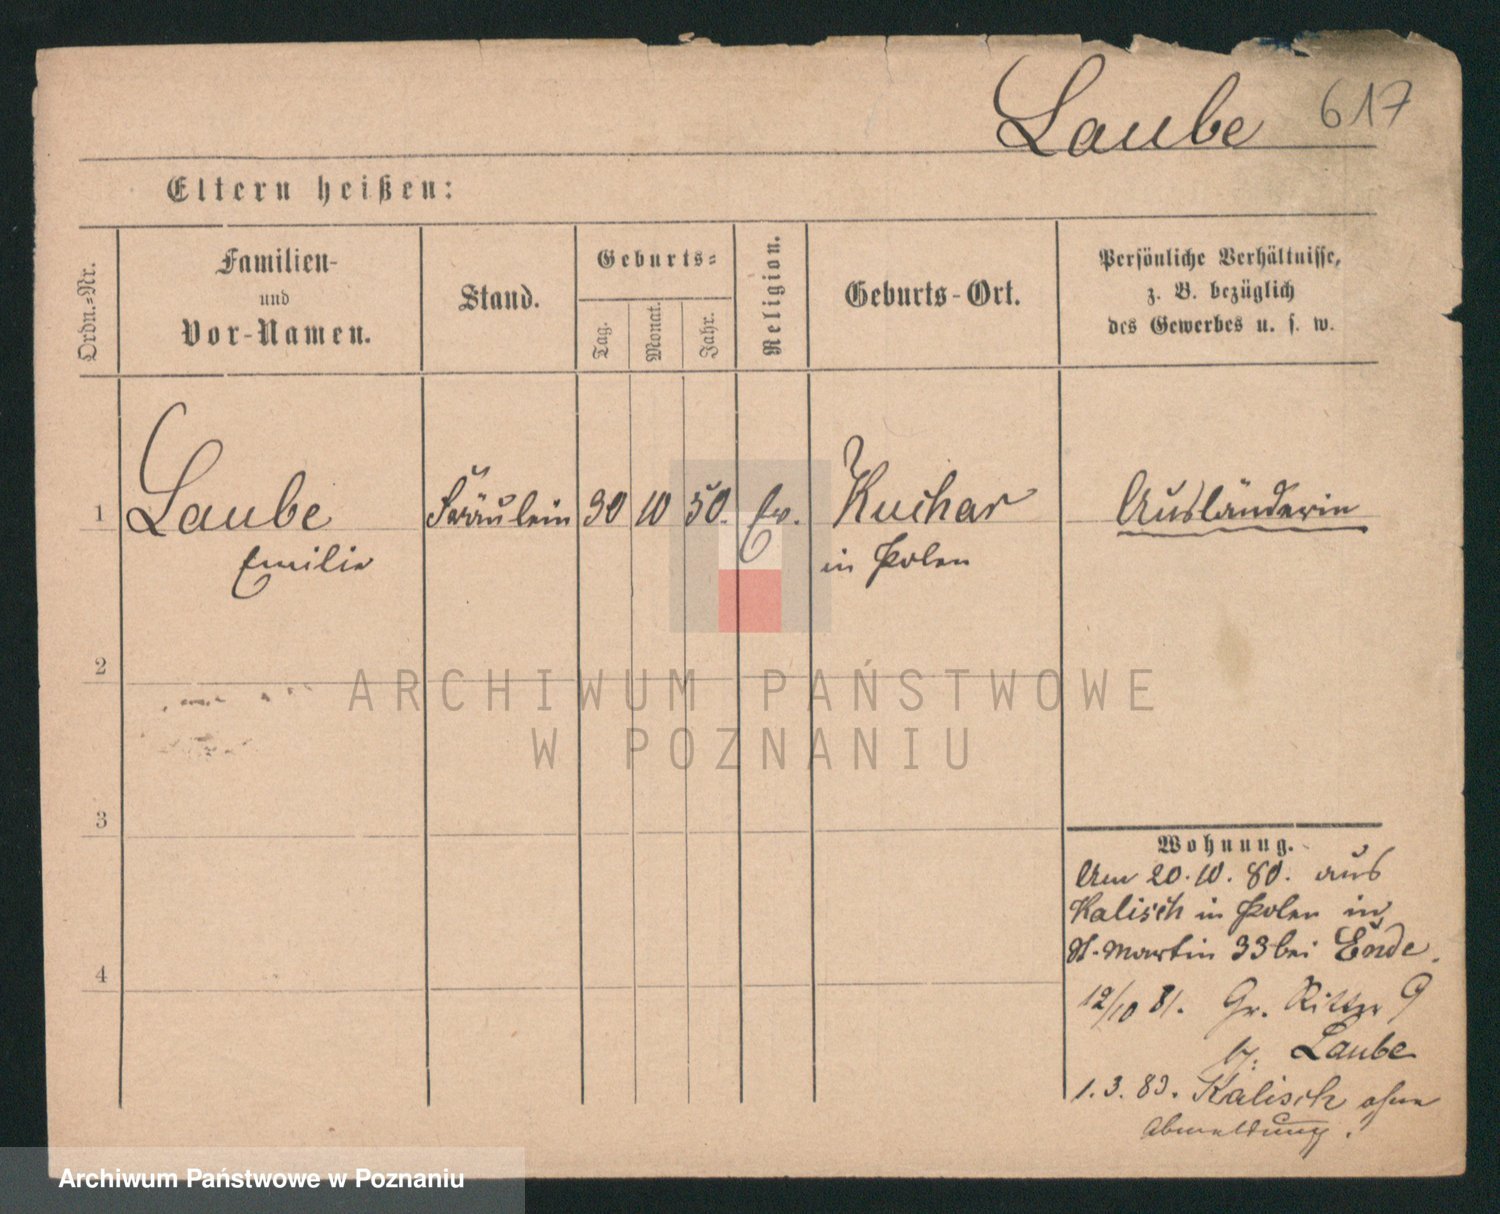 Laube 617
Eltern heißen:
Ordn.=Nr.
Familien-
und
Vor-Namen.
Stand.
Geburts=
Tag.
Monat.
Jahr.
Religion.
Geburts-Ort.
Persönliche Verhältnisse,
z. B. bezüglich
des Gewerbes u. s. w.
1 Laube Fräulein 30 10 50. ev. Kuchar Ausländerin
Emilie in Polen
2
ARCHIWUM PAŃSTWOWE
W POZNANIU
3
4
Wohnung.
Am 20.10.80. aus
Kalisch in Polen in
St. Martin 33 bei Ende.
12/10 81. Gr. Ritter 9
b. Laube
1.3.83. Kalisch ohne
Abmeldung.
Archiwum Państwowe w Poznaniu